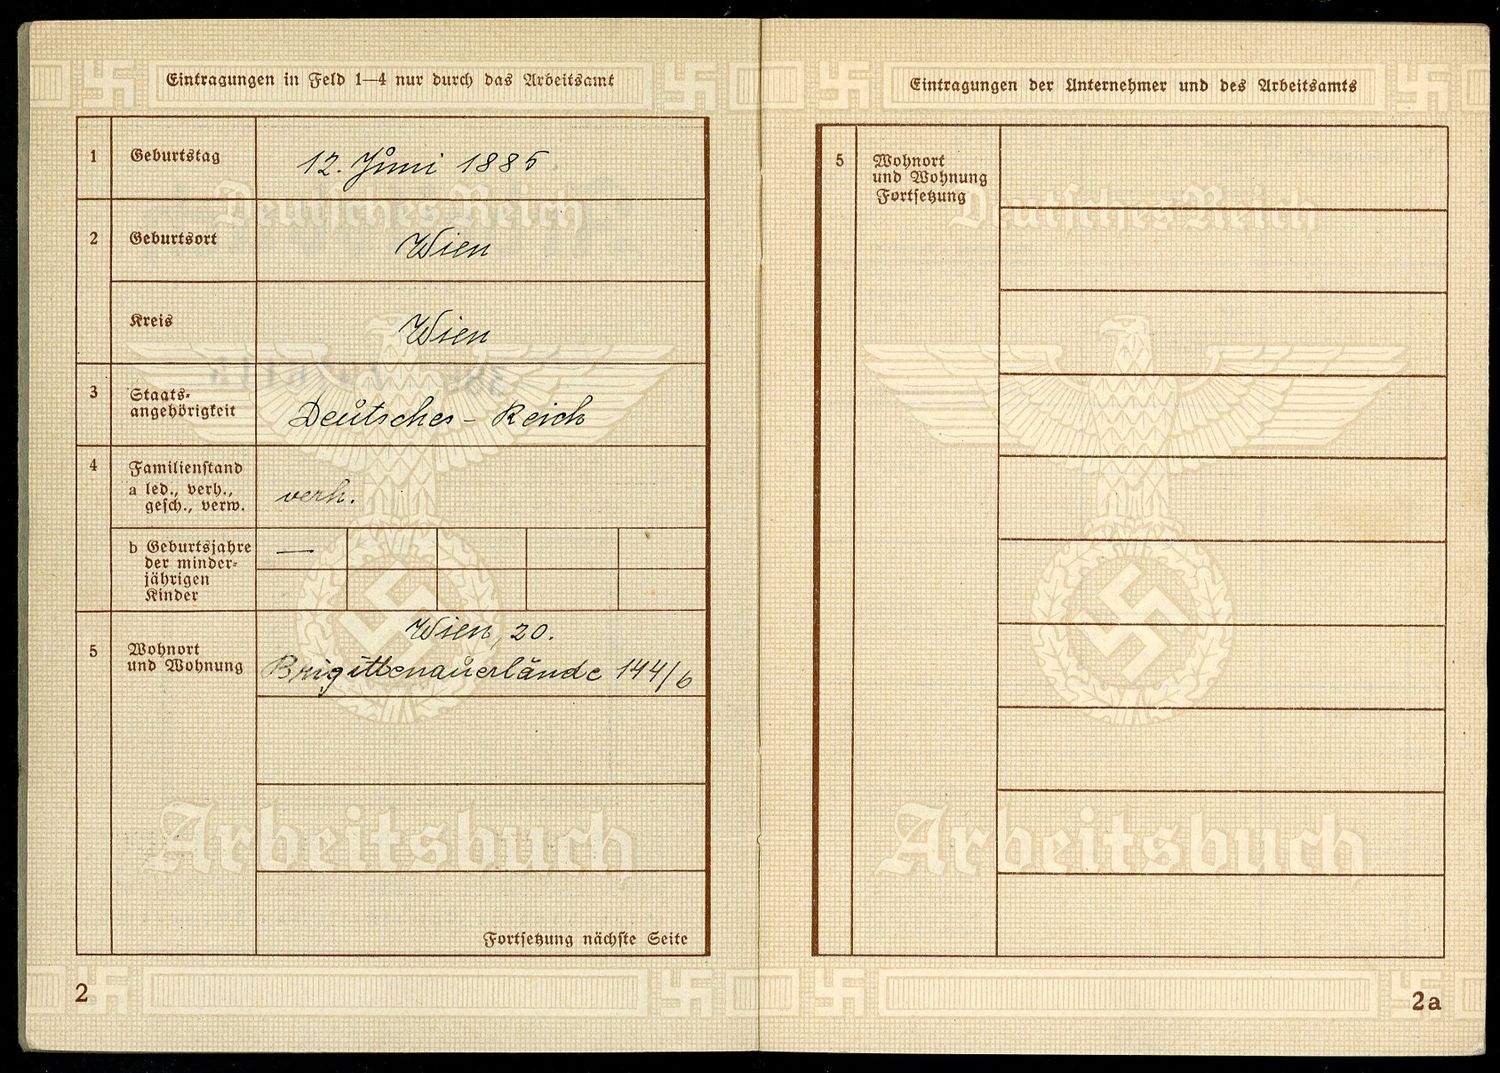 Eintragungen in Feld 1—4 nur durch das Arbeitsamt
1 Geburtstag 12. Juni 1885.
2 Geburtsort Wien
Kreis Wien
3 Staats-
angehörigkeit Deutsches-Reich
4 Familienstand
a led., verh.,
gesch., verw. verh.
b Geburtsjahre —
der minder-
jährigen
Kinder
5 Wohnort
und Wohnung
Wien, 20.
Brigittenauerlände 144/6
Fortsetzung nächste Seite
2
Deutsches Reich
Arbeitsbuch
Eintragungen der Unternehmer und des Arbeitsamts
5 Wohnort
und Wohnung
Fortsetzung
Deutsches Reich
Arbeitsbuch
2a